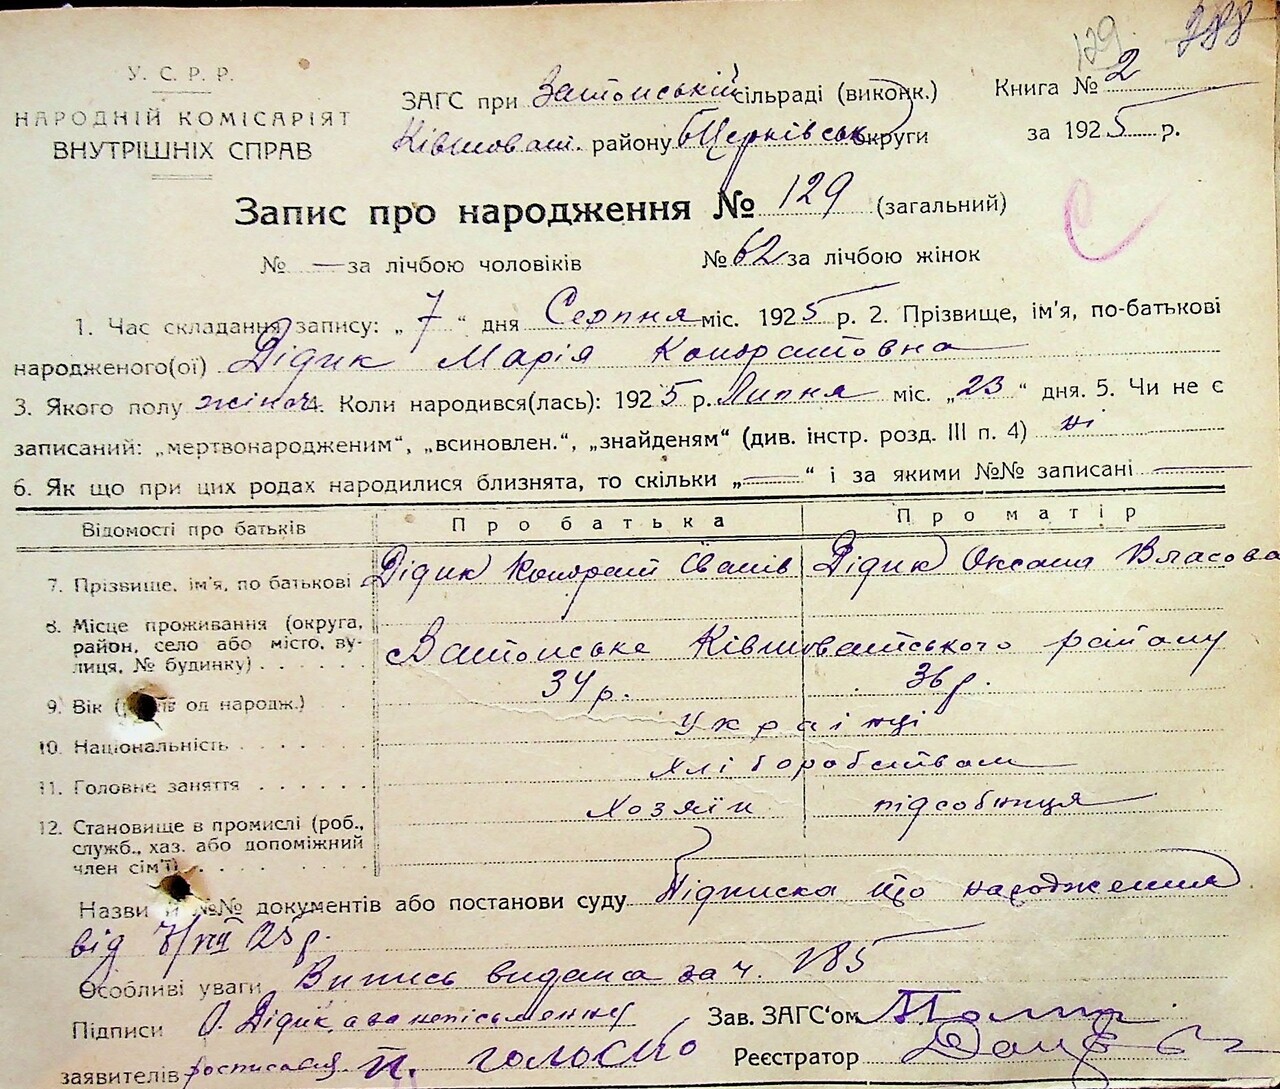 129 288
У. С. Р. Р.
НАРОДНІЙ КОМІСАРІЯТ
ВНУТРІШНІХ СПРАВ
ЗАГС при сільраді (виконк.)
Ківшоват. району Бцерківськ округи
Книга № 2
за 1925 р.
Запис про народження № 129 (загальний)
№ — за лічбою чоловіків № 62 за лічбою жінок
1. Час складання запису: „ 7 “ дня Серпня міс. 1925 р. 2. Прізвище, ім'я, по-батькові
народженого(ої) Дідик Марія Кондратовна
3. Якого полу жіноч 4. Коли народився(лась): 1925 р. Липня міс. „23“ дня. 5. Чи не є
записаний: „мертвонародженим“, „всиновлен.“, „знайденям“ (див. інстр. розд. III п. 4) ні
6. Як що при цих родах народилися близнята, то скільки „—“ і за якими №№ записані —
Відомості про батьків Про батька Про матір
7. Прізвище, ім'я, по батькові Дідик Кондрат Іванів Дідик Оксана Власова
8. Місце проживання (округа,
район, село або місто, ву-
лиця, № будинку) Ківшоватського району
9. Вік ( од народж.) 34 р. 36 р.
10. Національність Українці
11. Головне заняття Хліборобством
12. Становище в промислі (роб.,
служб., хаз. або допоміжний
член сім'ї) Хозяїн підсобниця
Назви й №№ документів або постанови суду Підписка що народження
від 7/VIII 25 р.
Особливі уваги Випись видана за ч. 185
Підписи О. Дідик, а за неписьменну Зав. ЗАГС'ом
заявителів росписався П. Голосно Реєстратор